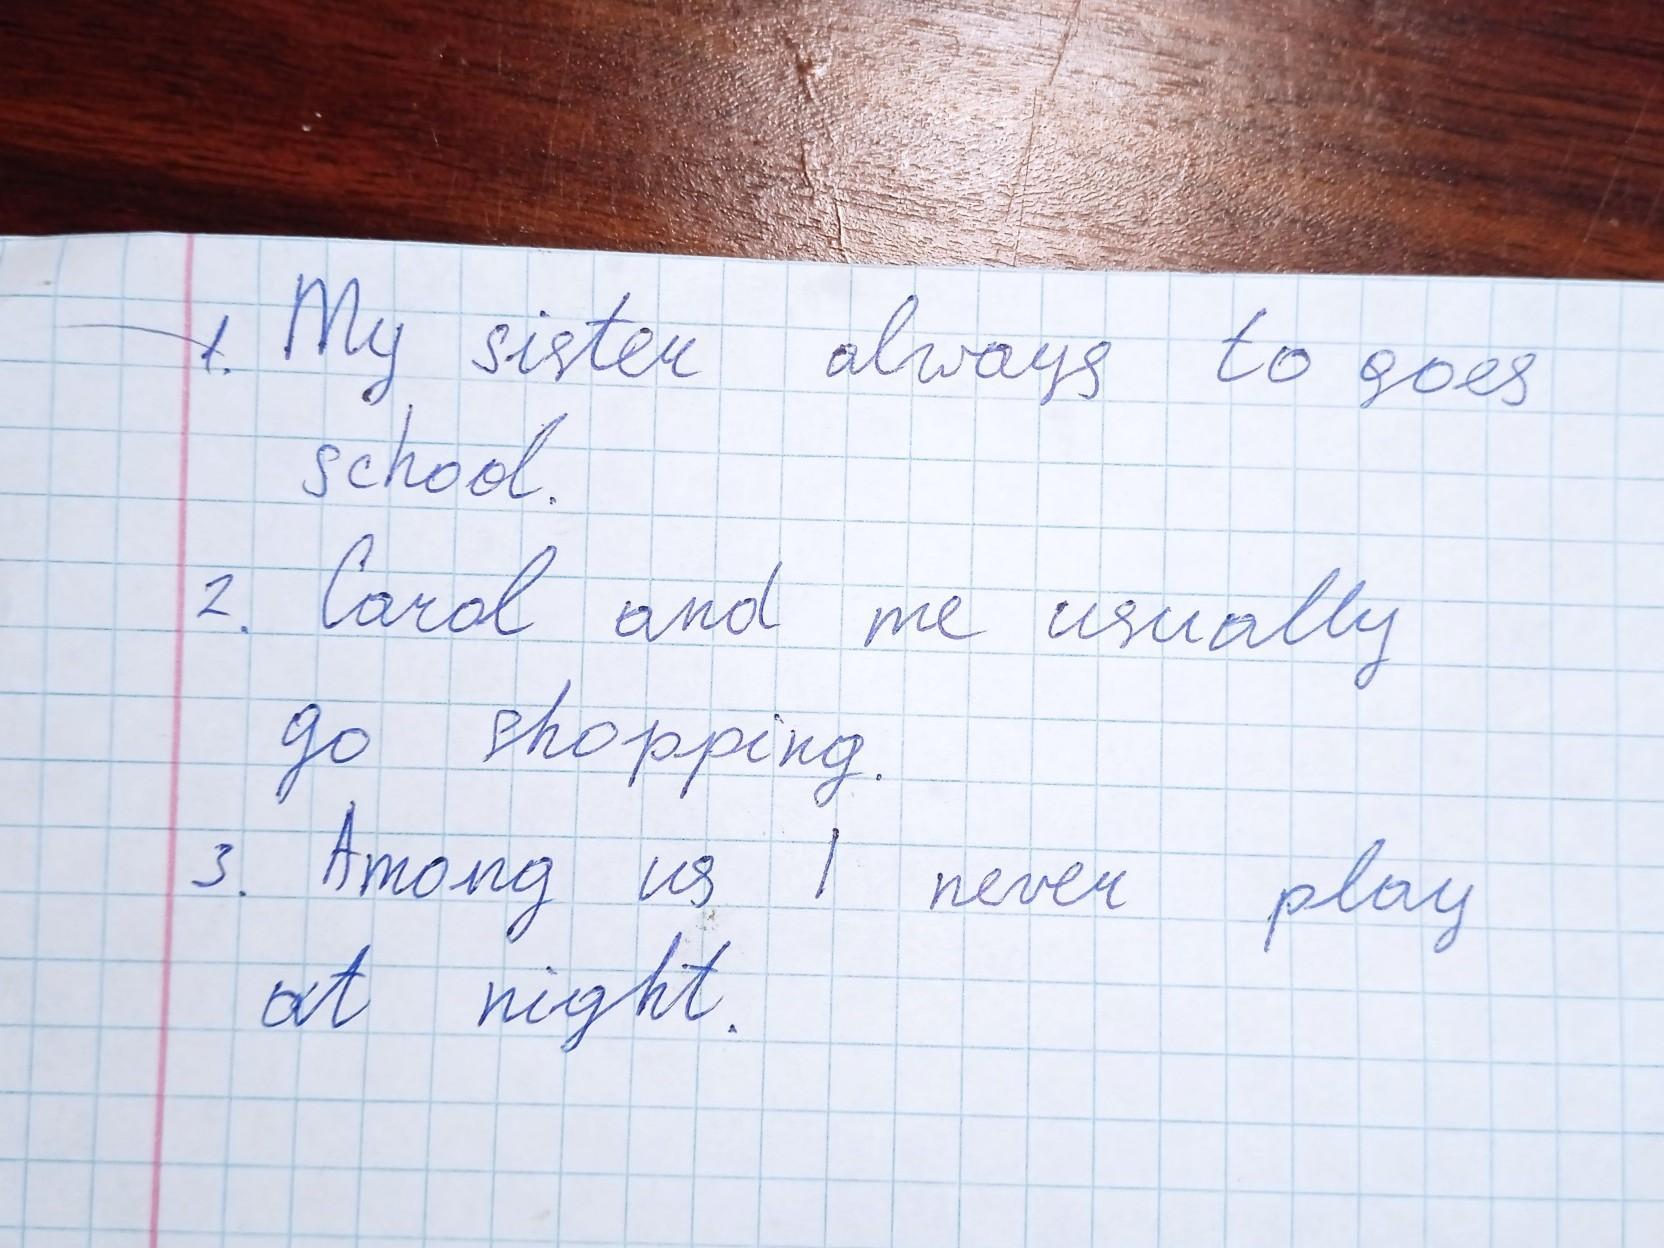 1. My sister always to goes
school.
2. Carol and me usually
go shopping.
3. Among us I never play
at night.